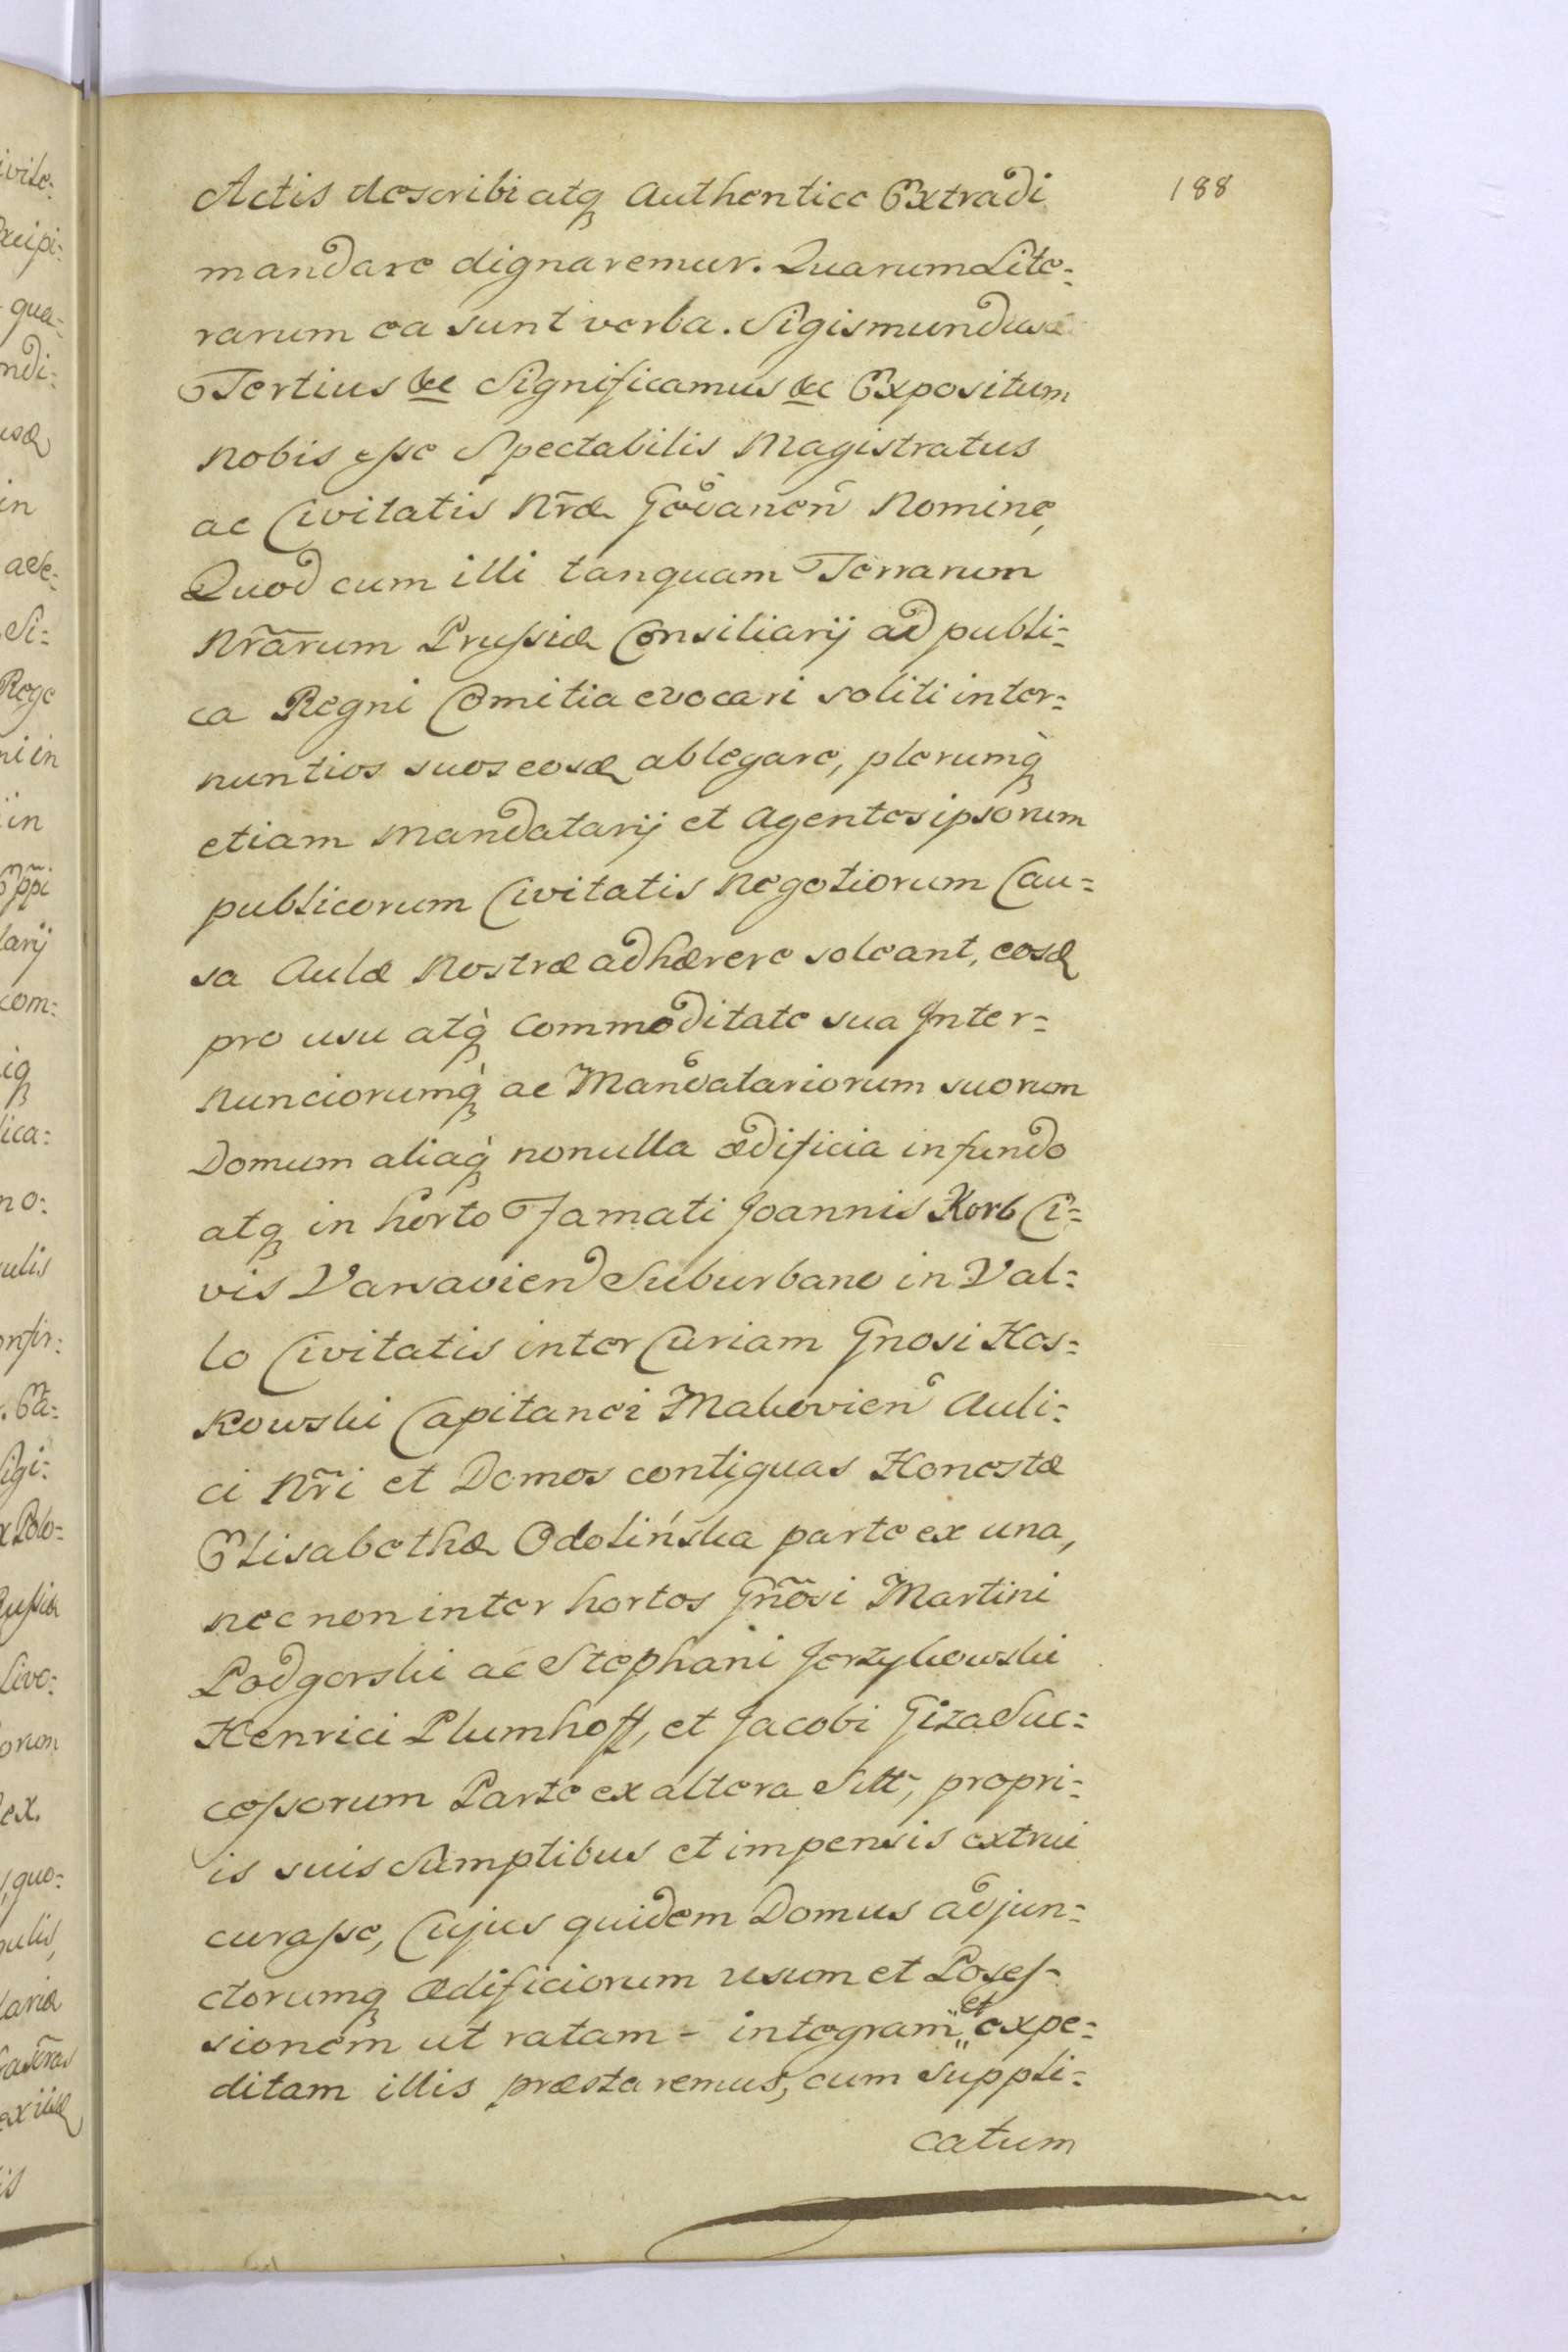 188
Actis describi atq̃ Authentice Extradi
mandare dignaremur. Quarum Lite:
rarum ea sunt verba. Sigismundus
Tertius &c Significamus &c Expositum
nobis esse Spectabilis Magistratus
ac Civitatis Nræ Gedanen Nomine,
Quod cum illi tanquam Terrarum
Nr̃arum Prussiæ Consiliarij ad publi:
ca Regni Comitia evocari soliti inter:
nuntios suos eosq ablegare, plerumq̀
etiam Mandatarij et Agentes ipsorum
publicorum Civitatis Negotiorum Cau:
sa Aulæ Nostræ adhærere soleant, eosq
pro usu atq̀ Commoditate sua Inter:
nunciorumq̀ ac Mandatariorum suorum
Domum aliaq̀ nonulla ædificia in fundo
atq in horto Famati Joannis Korb Ci:
vis Varsavien Suburbano in Val:
lo Civitatis inter Curiam Gnosi Kos:
kowski Capitanei Makovien Auli:
ci Nr̃i et Domos contiguas Honestæ
Elisabethæ Odolińska parte ex una,
nec non inter hortos Gnõsi Martini
Podgorski ac Stephani Jerzykowski
Henrici Plumhoff, et Jacobi Giza Suc:
cessorum Parte ex altera Sitt, propri:
is suis Sumptibus et impensis extrui
curasse, Cujus quidem Domus adjun:
ctorumq ædificiorum usum et Posses-
sionem ut ratam - integram et expe:
ditam illis præstaremus, cum Suppli:
catum